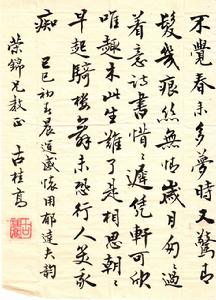 不覺春來多夢時又驚
髮幾痕絲無情歲月匆過
着意詩書惜遲凭軒可欣
唯趣未此生難了是相思朝朝
早起騎樓舞未恐行人笑我
痴
己巳初春晨運感懷用郁達夫韻
榮錦兄教正
古桂高